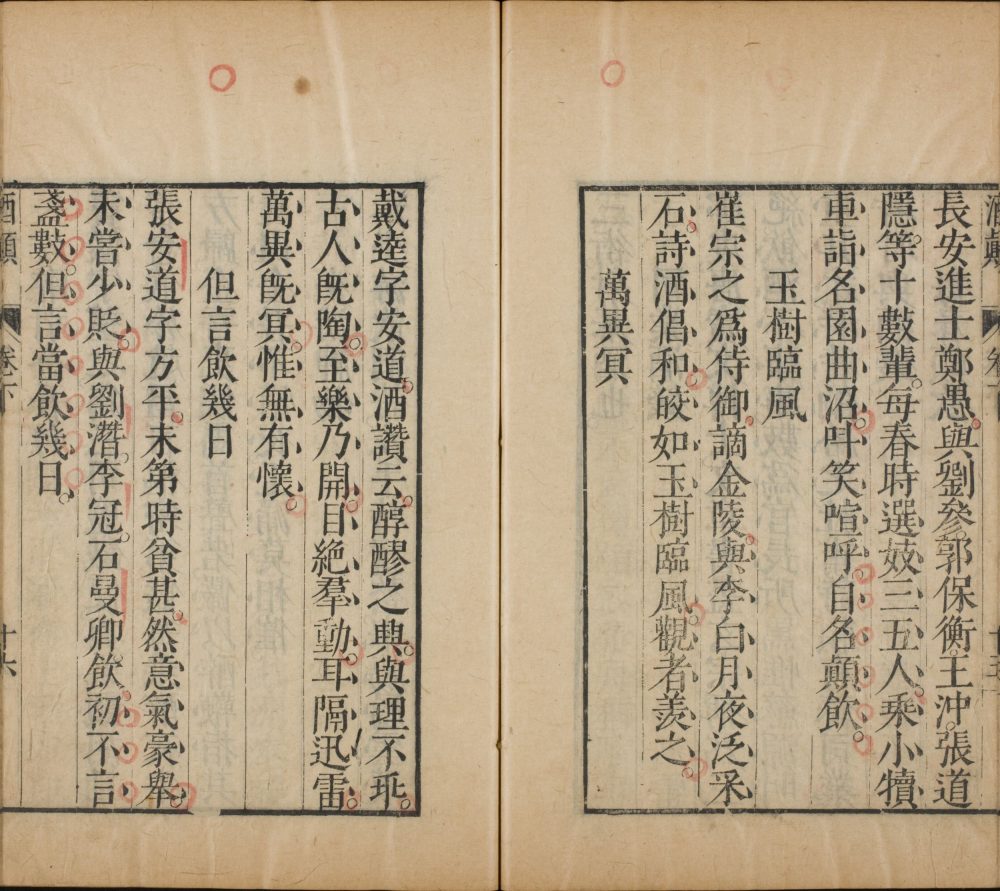 酒顛 卷下
長安進士鄭愚與劉參郭保衡王沖張道
隱等十數輩每春時選妓三五人乘小犢
車詣名園曲沼叫笑喧呼自名顛飲
玉樹臨風
崔宗之爲侍御謫金陵與李白月夜泛采
石詩酒倡和皎如玉樹臨風觀者羨之
萬異冥
戴逵字安道酒讚云醇醪之興與理不乖
古人旣陶至樂乃開目絶羣動耳隔迅雷
萬異旣冥惟無有懷
但言飲幾日
張安道字方平未第時貧甚然意氣豪舉
未嘗少貶與劉潛李冠石曼卿飲初不言
盞數但言當飲幾日
酒顛 卷下 十六